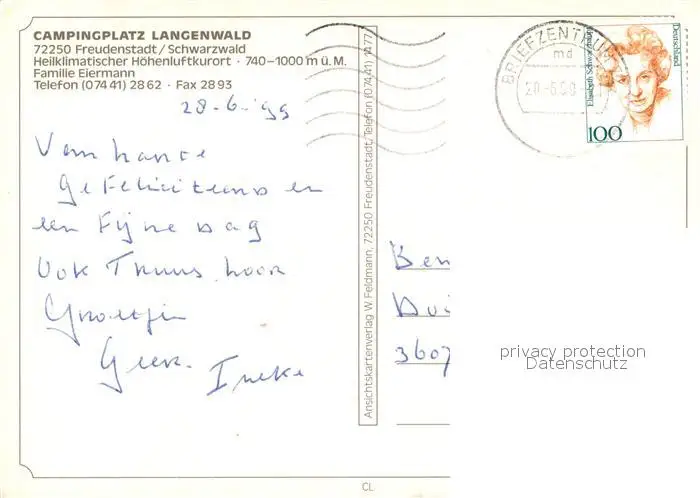 CAMPINGPLATZ LANGENWALD
72250 Freudenstadt/Schwarzwald
Heilklimatischer Höhenluftkurort · 740-1000 m ü. M.
Familie Eiermann
Telefon (07441) 2862 · Fax 2893
28-6-'99
Van harte
gefeliciteerd en
een Fijne dag
Ook Truus hoor
Groetjes
Ineke
Ansichtskartenverlag W. Feldmann, 72250 Freudenstadt, Telefon (07441) 1477
CL
BRIEFZENTRUM
md
Elisabeth Schwarzhaupt
Deutschland
100
Ben
Dui
3607
privacy protection
Datenschutz